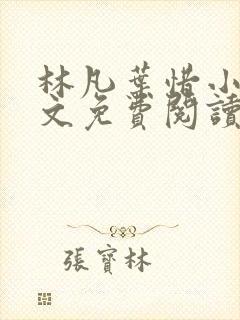 林凡葉惜小
文免費閱讀
張寶林